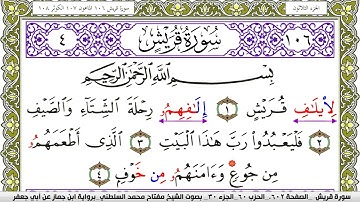 الجزء الثلاثون
سورة قريش ١٠٦ الماعون ١٠٧ الكوثر ١٠٨
١٠٦ سُورَةُ قُرَيْشٍ ٤
بِسْمِ اللَّهِ الرَّحْمَٰنِ الرَّحِيمِ
لِيلَٰفِ قُرَيْشٍ ١ إِلَٰفِهِمُۥ رِحْلَةَ الشِّتَآءِ وَالصَّيْفِ
٢ فَلْيَعْبُدُوا۟ رَبَّ هَٰذَا الْبَيْتِ ٣ الَّذِى أَطْعَمَهُمُۥ
مِن جُوعٍ وَءَامَنَهُمُۥ مِن خَوْفٍ ٤
سورة قريش . الصفحة ٦٠٢ . الحزب ٦٠ . الجزء ٣٠ . بصوت الشيخ مفتاح محمد السلطني . برواية ابن جماز عن أبي جعفر